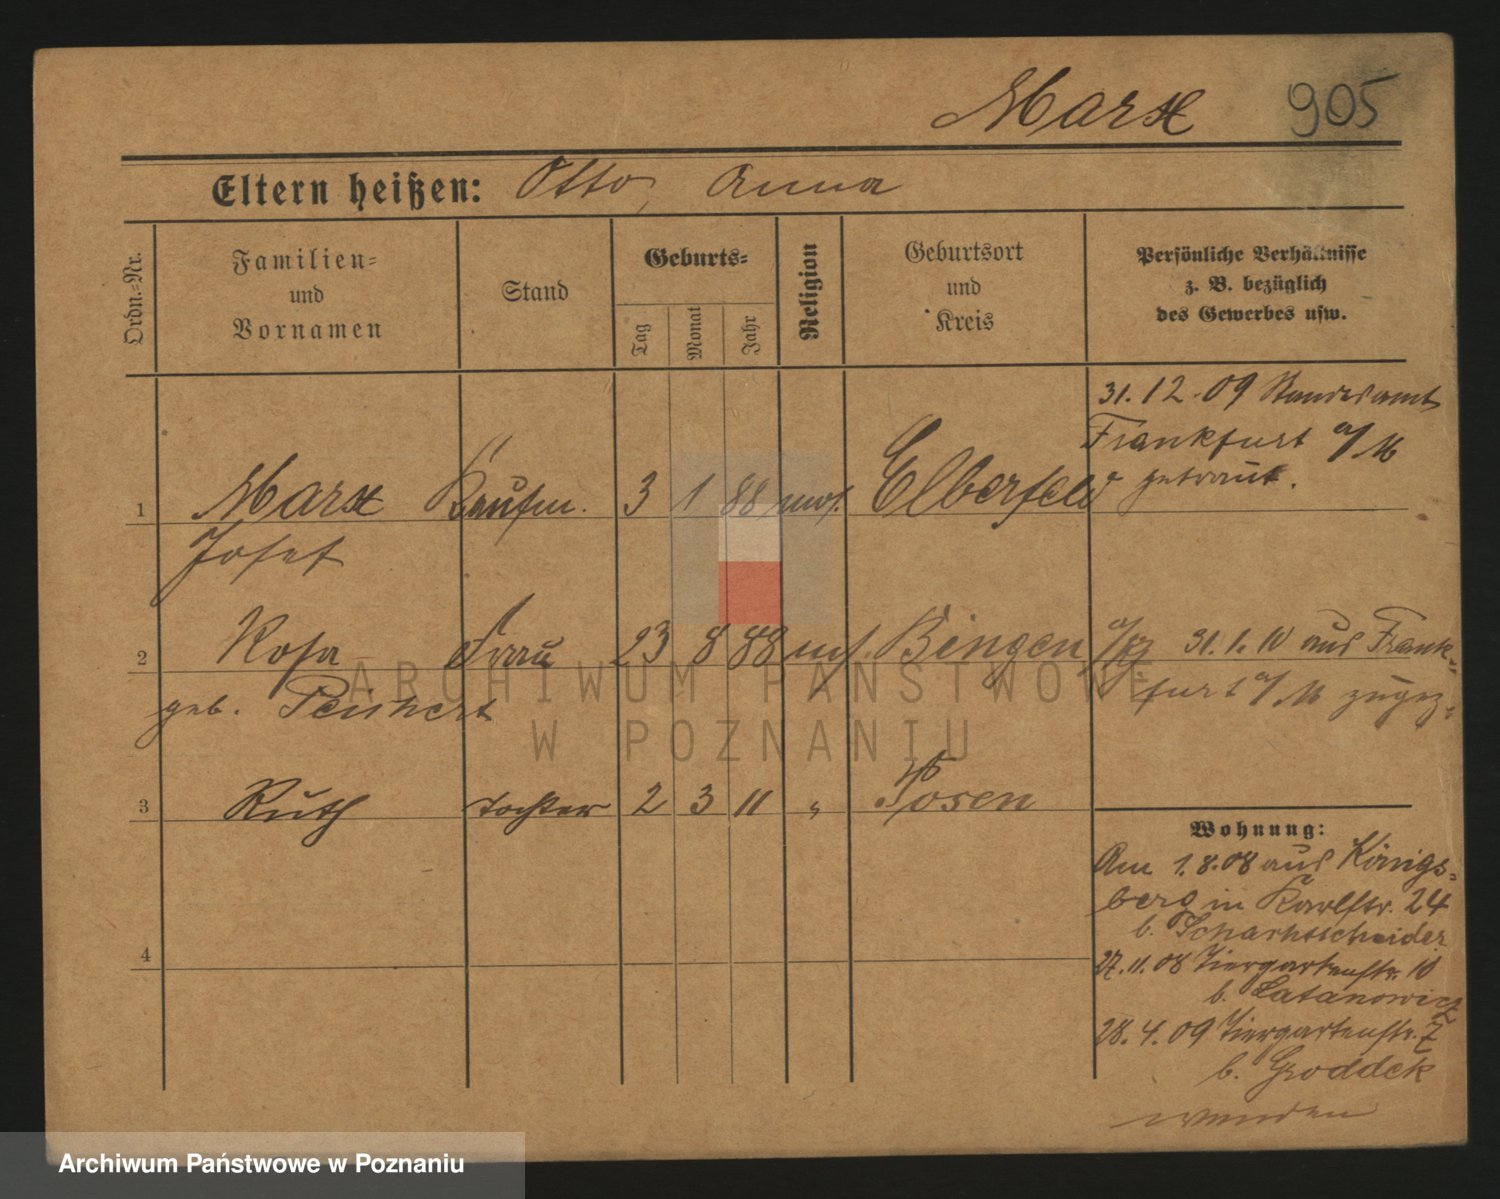 Marx 905
Eltern heißen: Otto, Anna
Ordn.-Nr.
Familien-
und
Vornamen
Stand
Geburts-
Tag
Monat
Jahr
Religion
Geburtsort
und
Kreis
Persönliche Verhältnisse
z. B. bezüglich
des Gewerbes usw.
31.12.09 Standesamt
Frankfurt a/M
getraut.
1 Marx Kaufm. 3 1 88 mos. Elberfeld
Josef
2 Rosa Frau 23 8 88 mos. Bingen a/Rh 31.1.10 aus Frank-
geb. furt a/M zugez.
3 Ruth Tochter 2 3 11 " Posen
4
Wohnung:
Am 1.8.08 aus Königs-
berg in Karlstr. 24
b.
27.11.08 Tiergartenstr. 10
b. Latanowicz
28.4.09 Tiergartenstr. 7
b. Groddek
wenden
ARCHIWUM PAŃSTWOWE
W POZNANIU
Archiwum Państwowe w Poznaniu